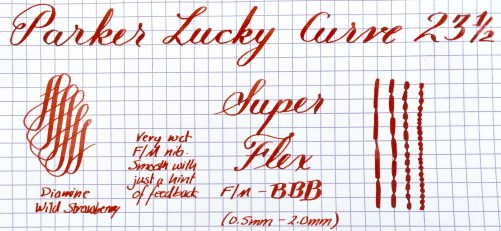 Parker Lucky Curve 23½
Diamine
Wild Strawberry
Very wet
F/M nib.
Smooth with
just a hint
of feedback
Super
Flex
F/M - BBB
(0.5mm - 2.0mm)